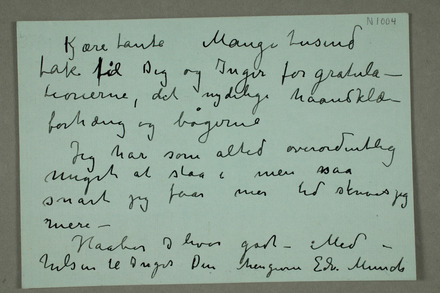 N 1004
Kjære tante Mange tusind
tak til Dig og Inger for gratula-
tionerne, det nydelige haandklæ-
forhæng og bøgerne
Jeg har som altid overordentlig
meget at staa i men saa
snart jeg faar mer tid skriver jeg
mere —
Haaber I har godt – Med –
hilsen til Inger Din hengivne Edv. Munch